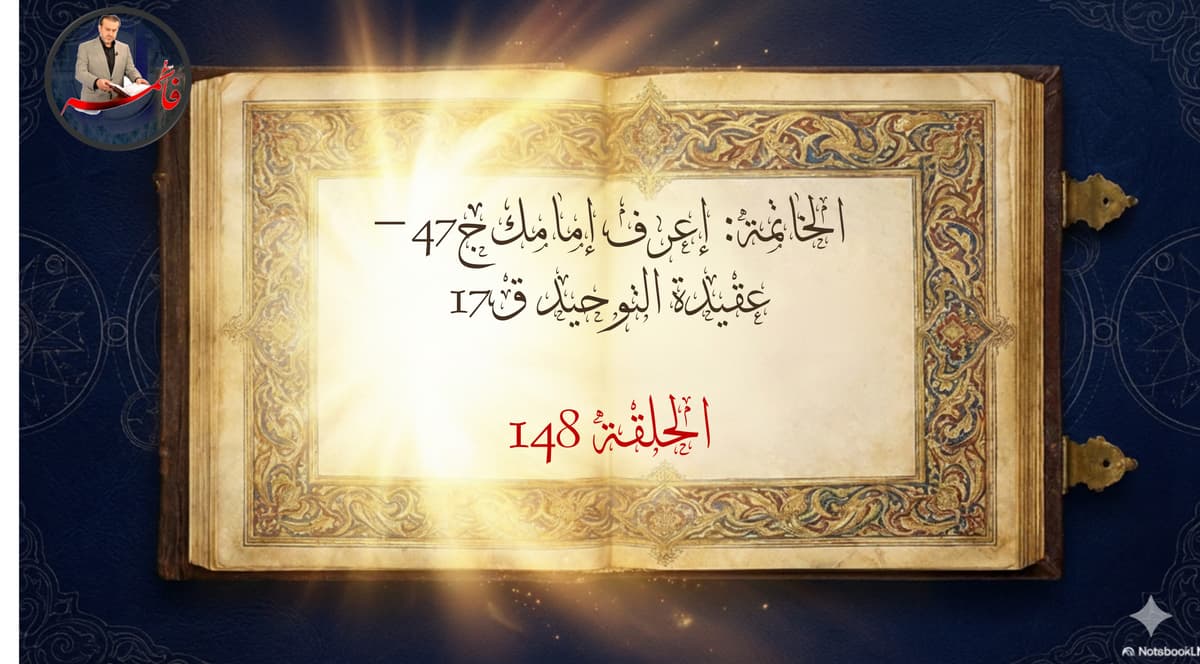 فاطمة
الخاتمة: إعرف إمامك ج47 –
عقيدة التوحيد ق17
الحلقة 148
NotsbookLM